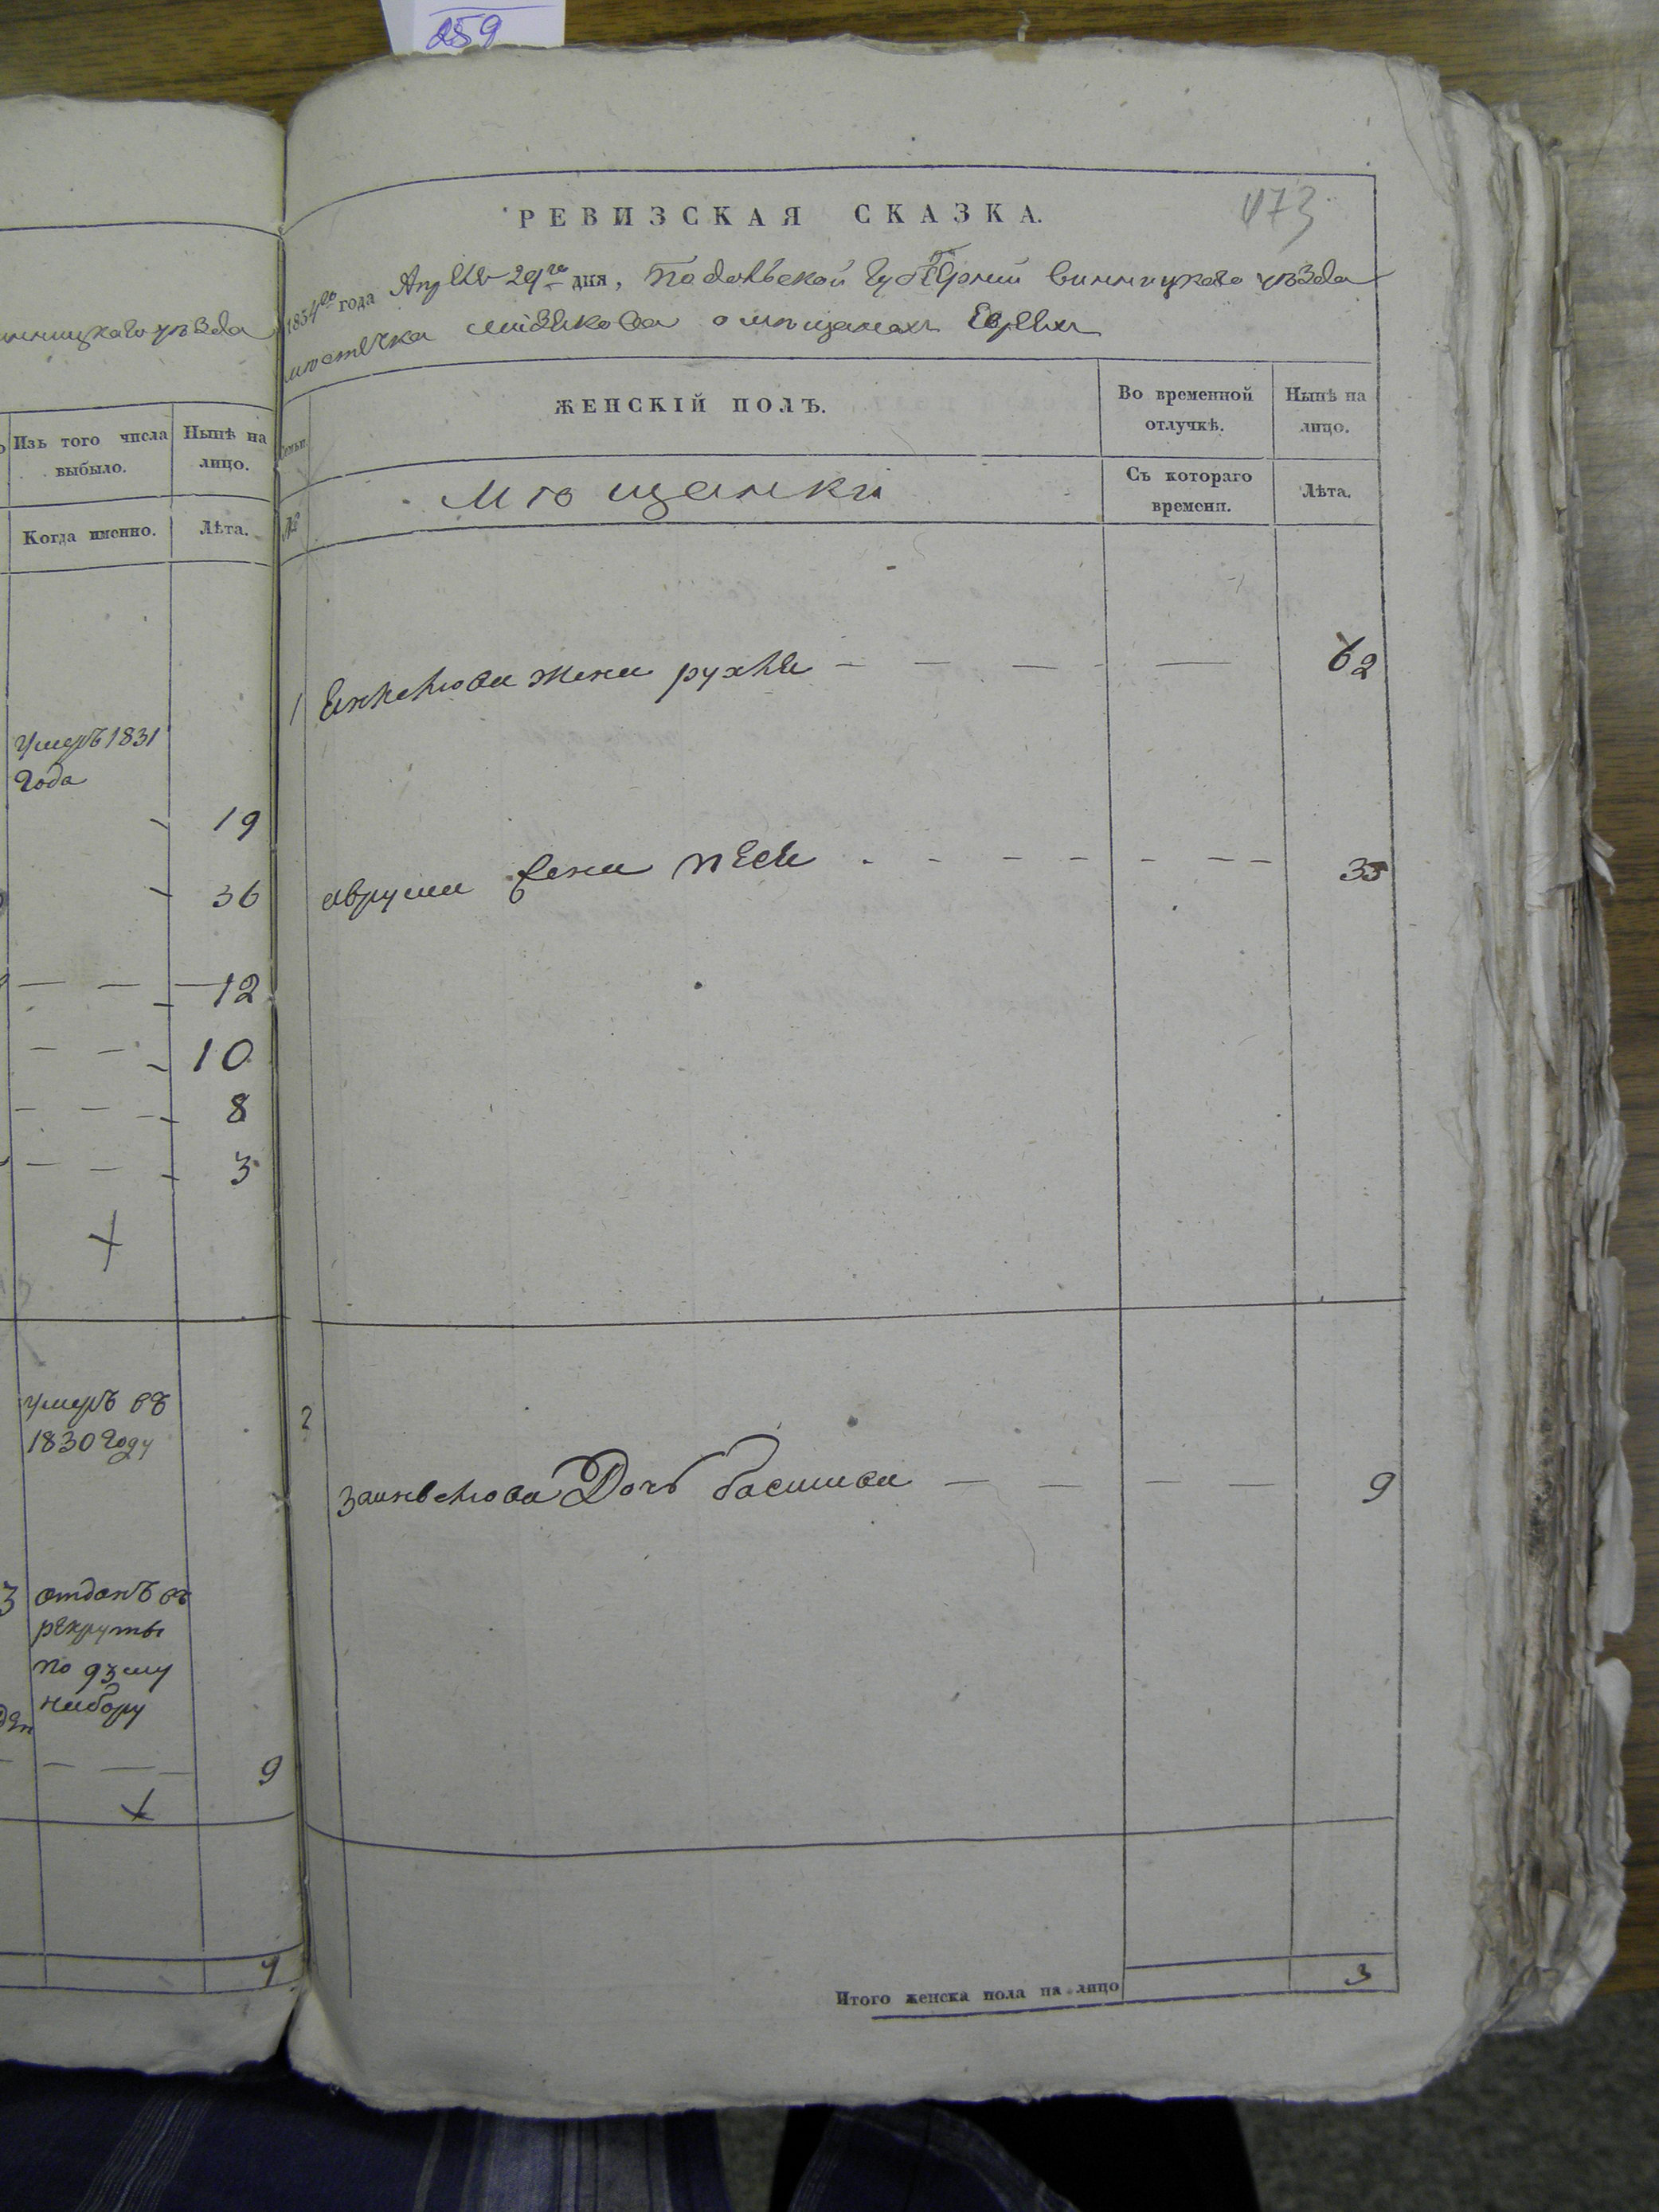 259
инницкаго уѣзда
Изъ того числа выбыло.
Нынѣ на лицо.
Когда именно.
Лѣта.
Умеръ 1831
года
19
36
12
10
8
3
умеръ въ
1830 году
3
отданъ въ
рекруты
по 93му
набору
9
РЕВИЗСКАЯ СКАЗКА.
473
1834го года Апреля 29го дня, Подольской Губернии Винницкаго уѣзда
мѣстечка о мѣщанахъ Евреяхъ
Семьи
ЖЕНСКІЙ ПОЛЪ.
Во временной отлучкѣ.
Нынѣ на лицо.
№
Мѣщанки
Съ котораго времени.
Лѣта.
1 Янкелюва жена рухля 62
аврума жена песя 35
2
дочь басшива 9
Итого женска пола на лицо 3